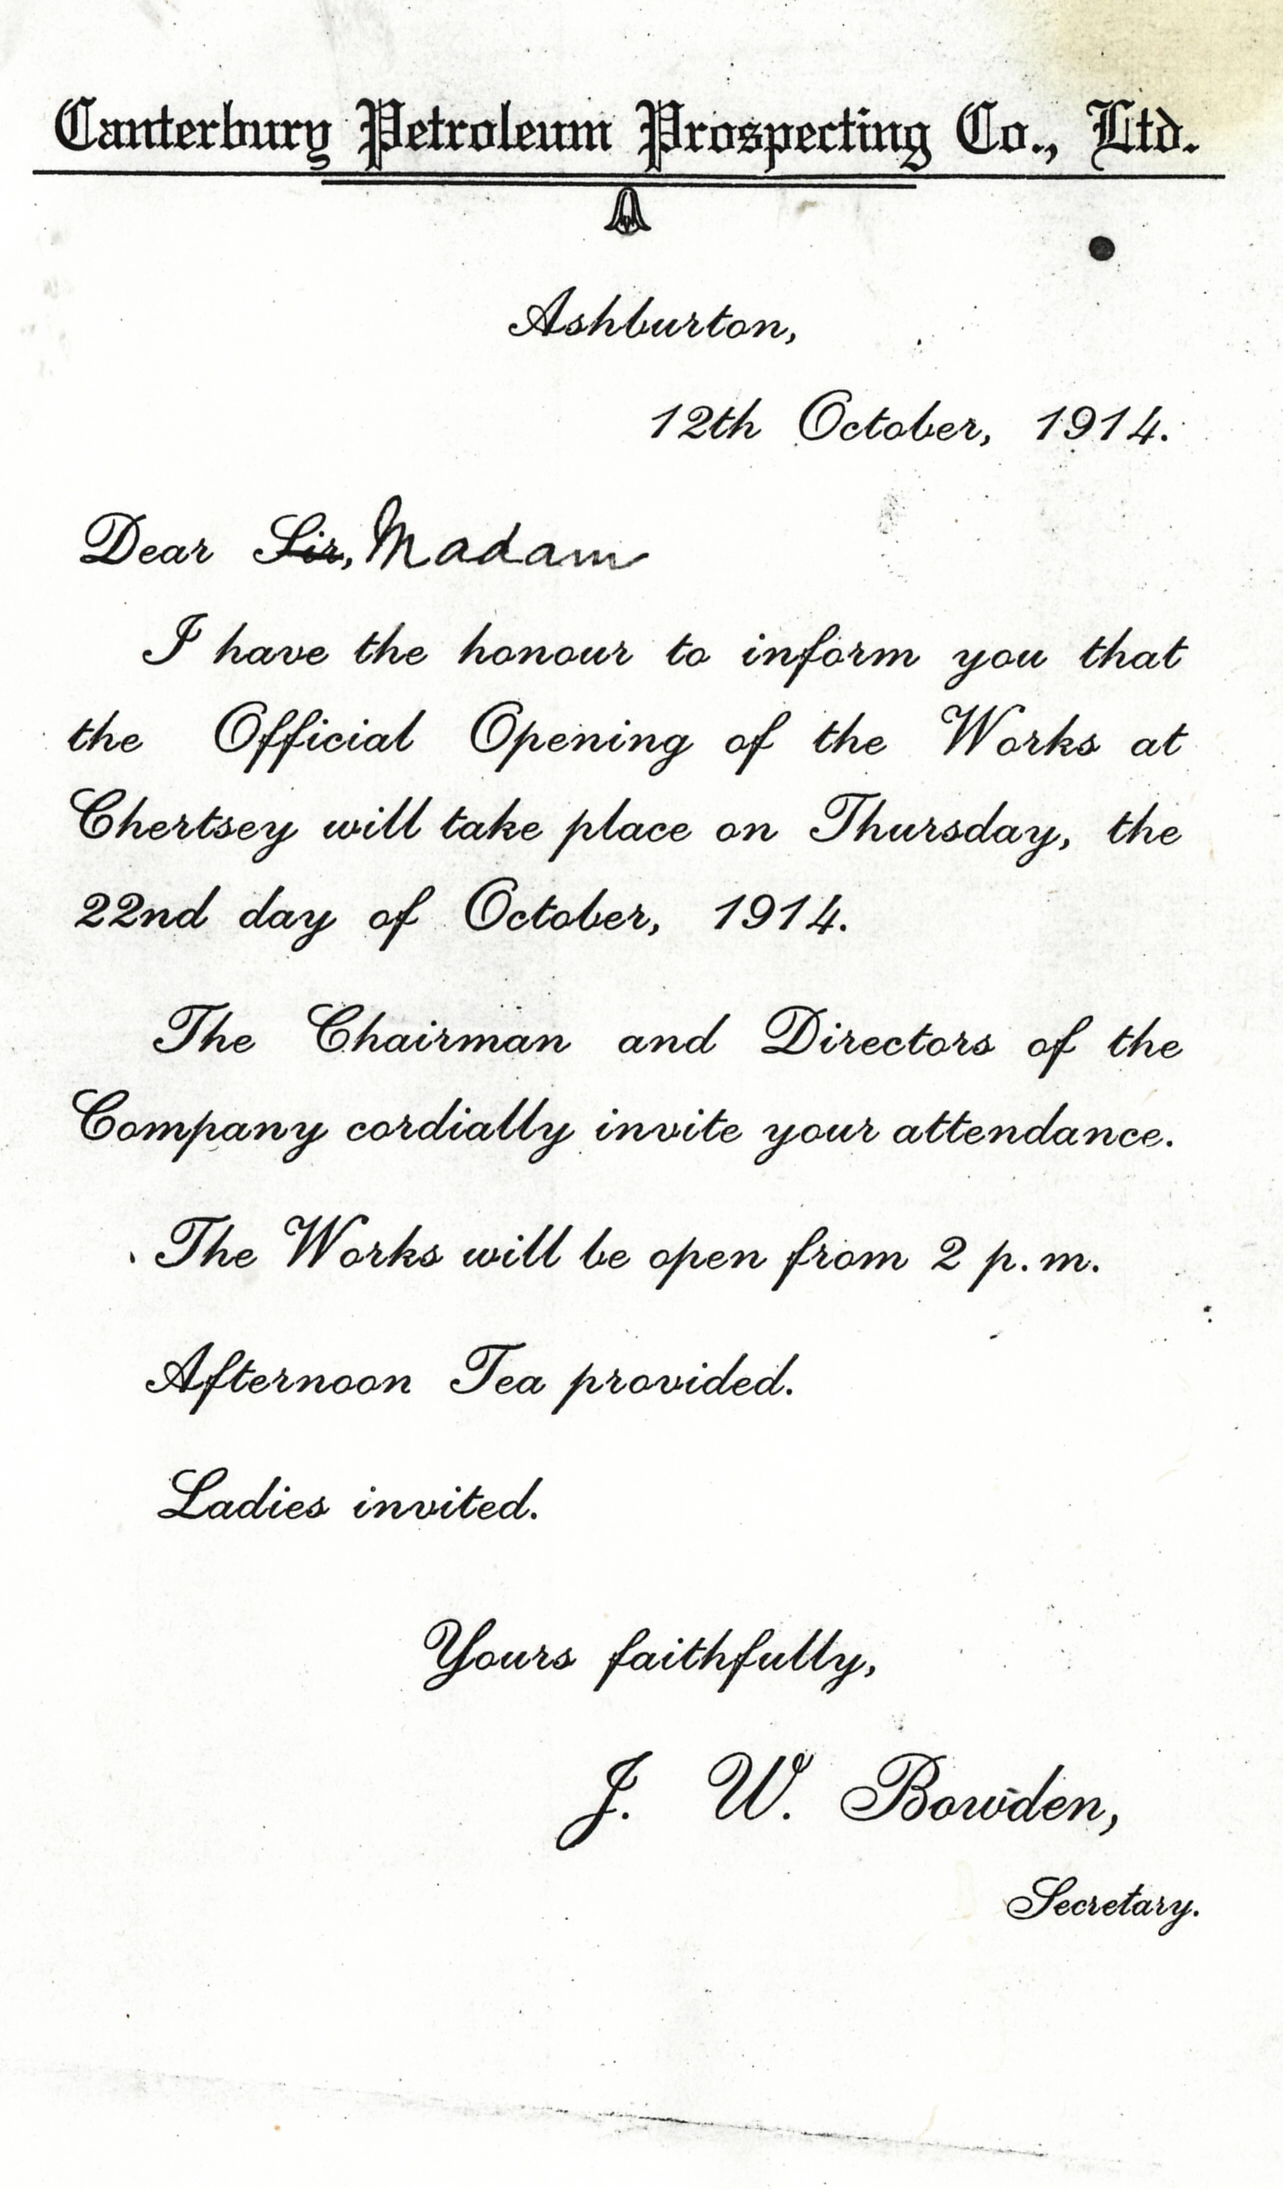 Canterbury Petroleum Prospecting Co., Ltd.
Ashburton,
12th October, 1914.
Dear Sir, Madam
I have the honour to inform you that
the Official Opening of the Works at
Chertsey will take place on Thursday, the
22nd day of October, 1914.
The Chairman and Directors of the
Company cordially invite your attendance.
The Works will be open from 2 p.m.
Afternoon Tea provided.
Ladies invited.
Yours faithfully,
J. W. Bowden,
Secretary.